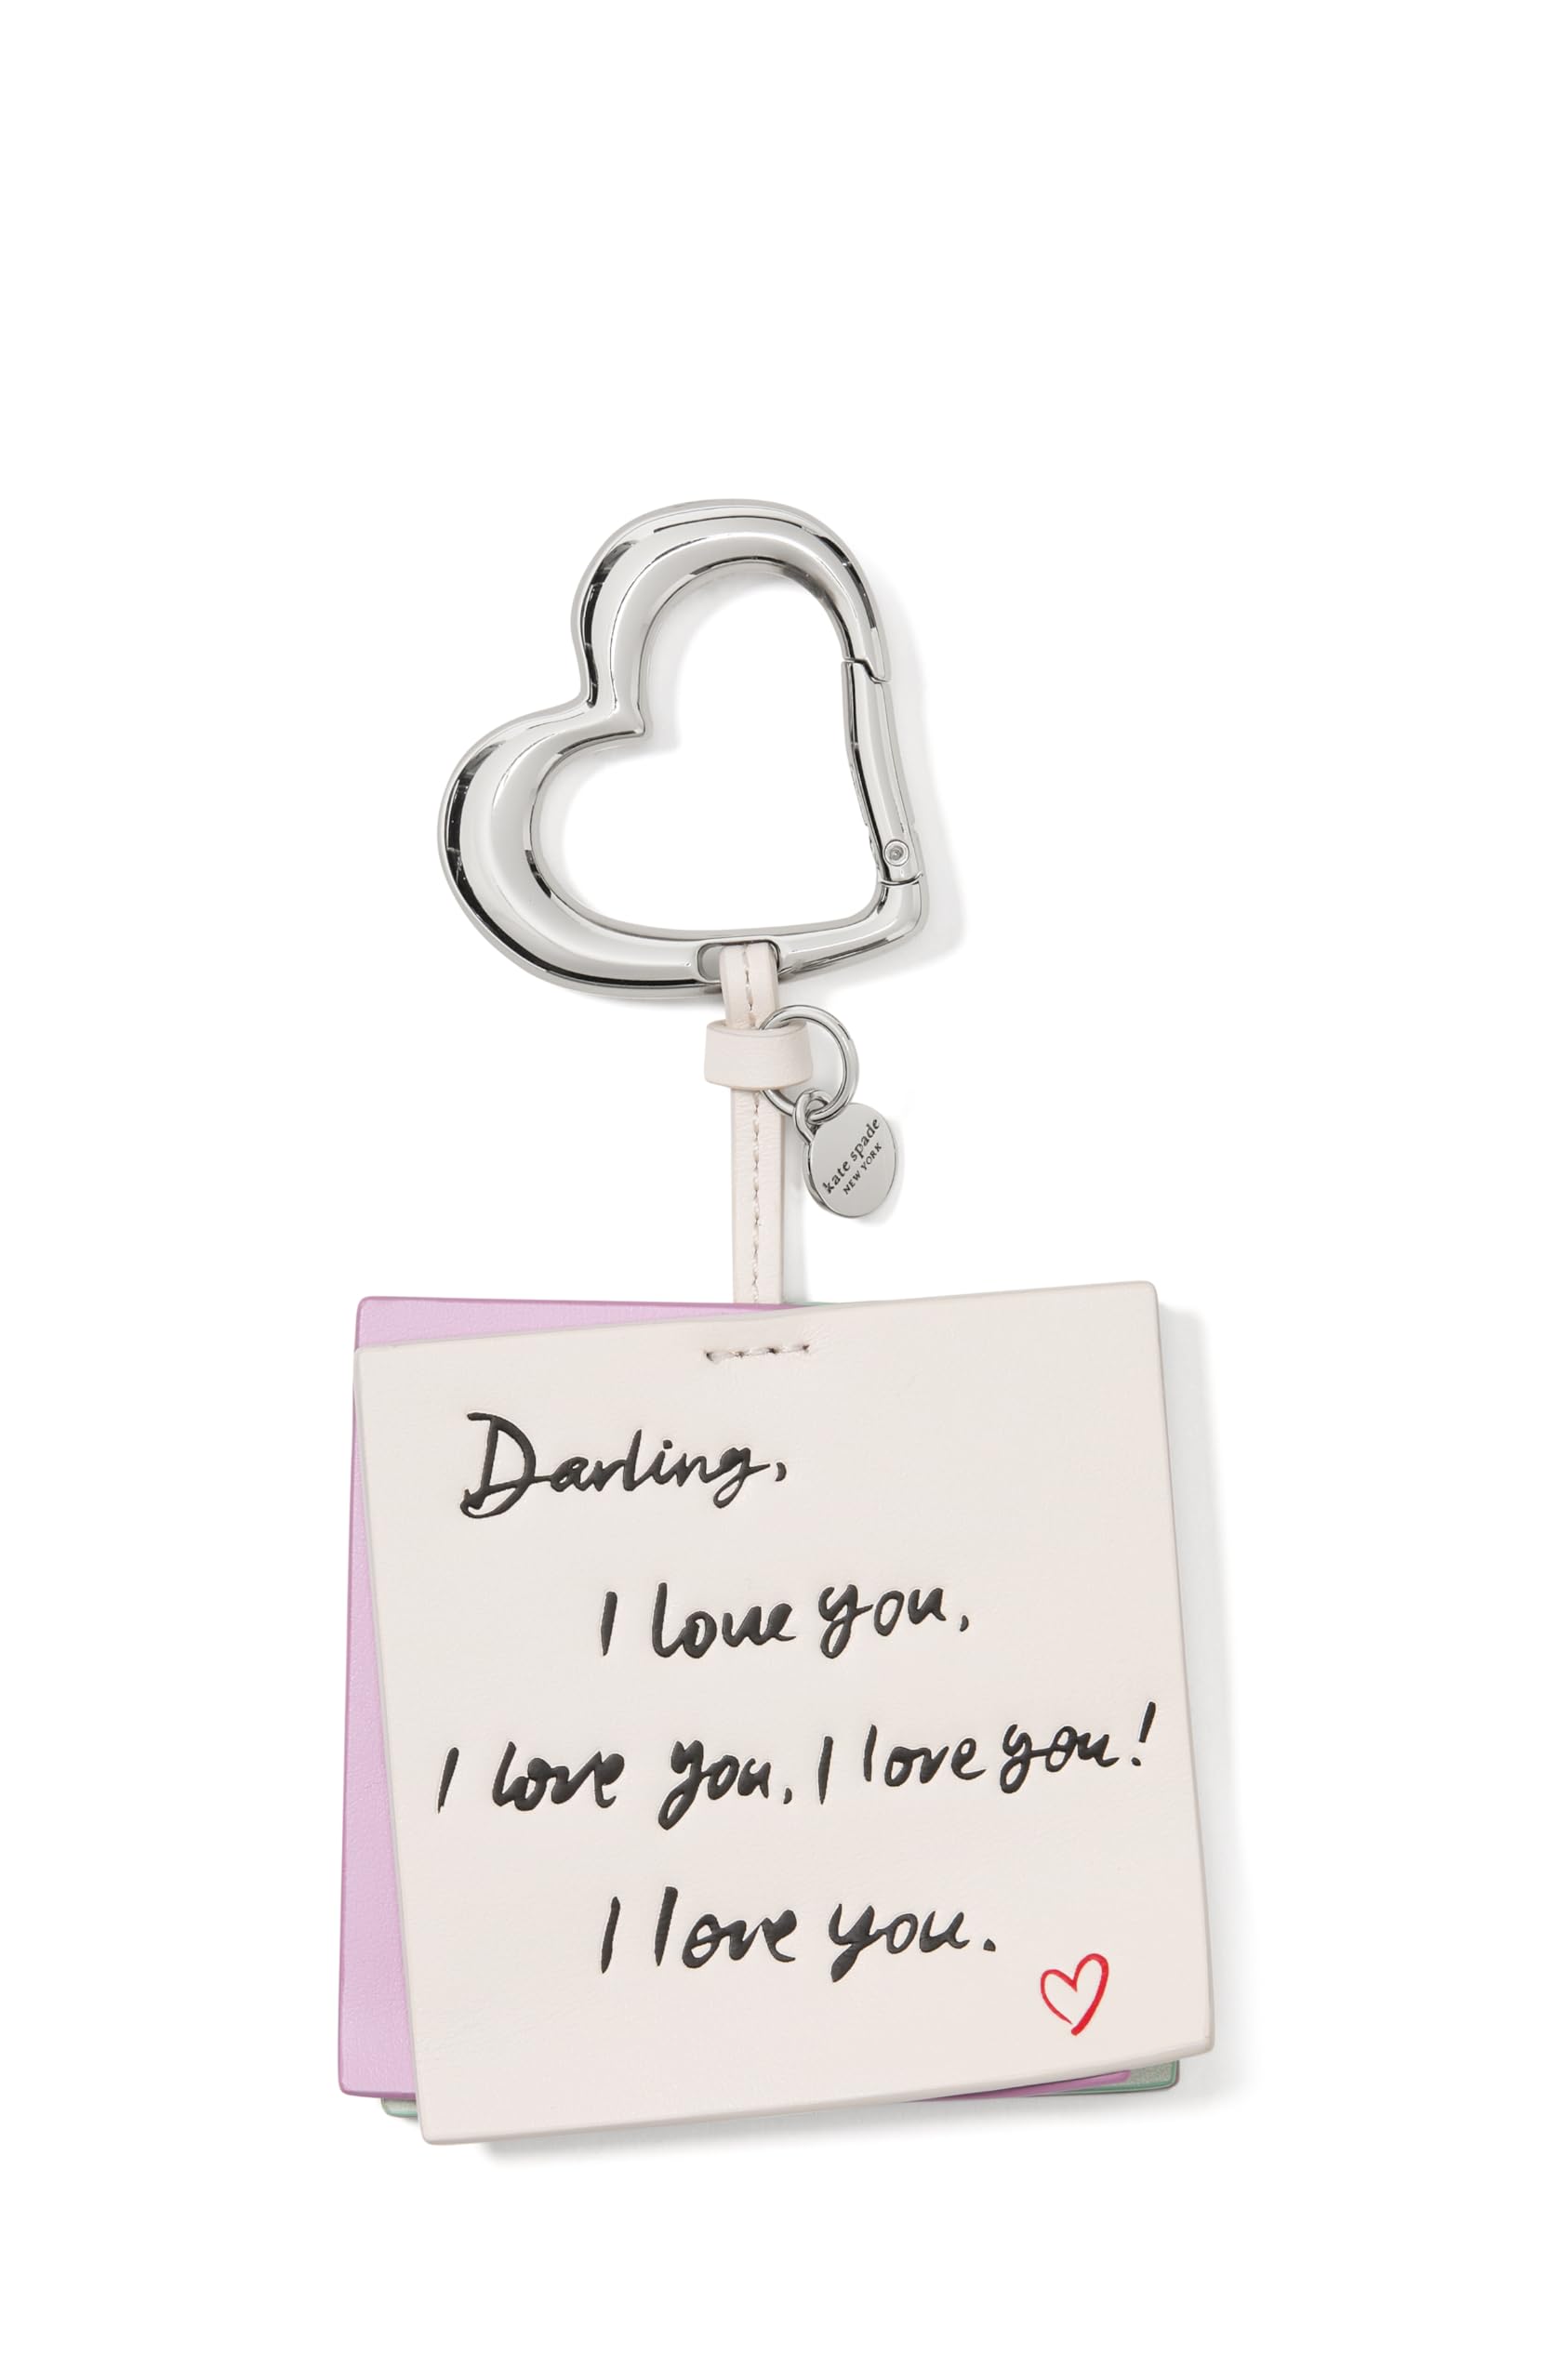 kate spade
NEW YORK
Darling,
I love you,
I love you, I love you!
I love you.